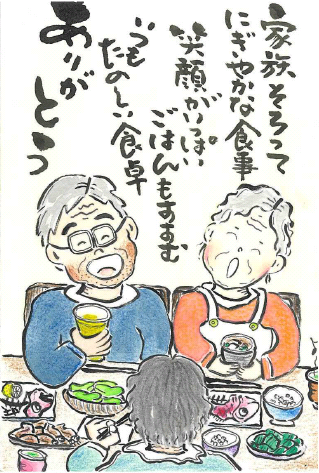 家族そろって
にぎやかな食事
笑顔がいっぱい
ごはんもすすむ
いつも
たのしい食卓
ありが
とう